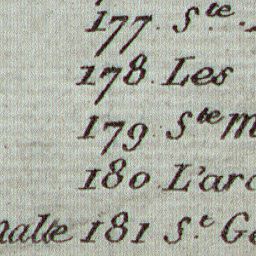 177. Ste.
178. Les
179. Ste M
180 L'arc
nalte 181 St. Ge